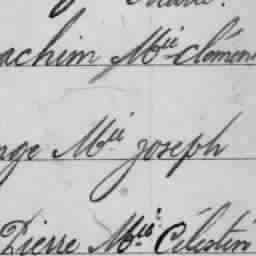 achim Mie clémen
nge Mie joseph
Pierre Mie Célestin